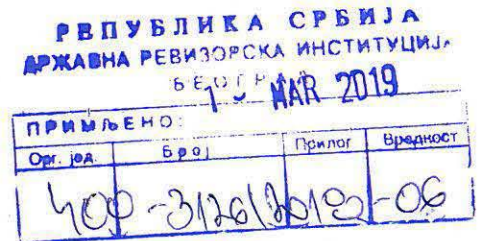 РЕПУБЛИКА СРБИЈА
ДРЖАВНА РЕВИЗОРСКА ИНСТИТУЦИЈА
БЕОГРАД
1 - MAR 2019
ПРИМЉЕНО:
Орг. јед. Број Прилог Вредност
400 -3126/2019 -06